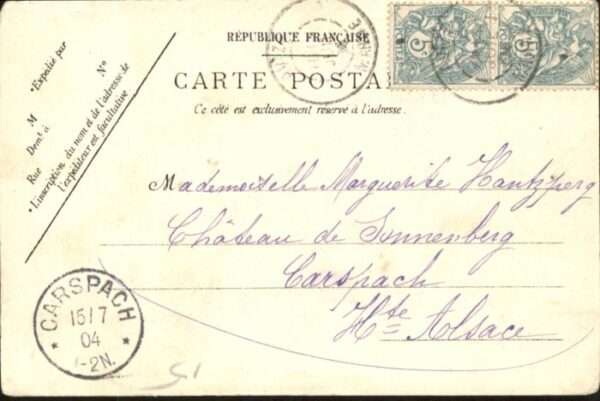 RÉPUBLIQUE FRANÇAISE
CARTE POSTA
Ce côté est exclusivement réservé à l'adresse.
Expédié par
M
N°
Demt à
Rue
• L'inscription du nom et de l'adresse de
l'expéditeur est facultative
5
5
Mademoiselle Marguerite Hantzperg
Château de Sonnenberg
Carspach
Hte Alsace
* CARSPACH *
15/7
04
-2N.